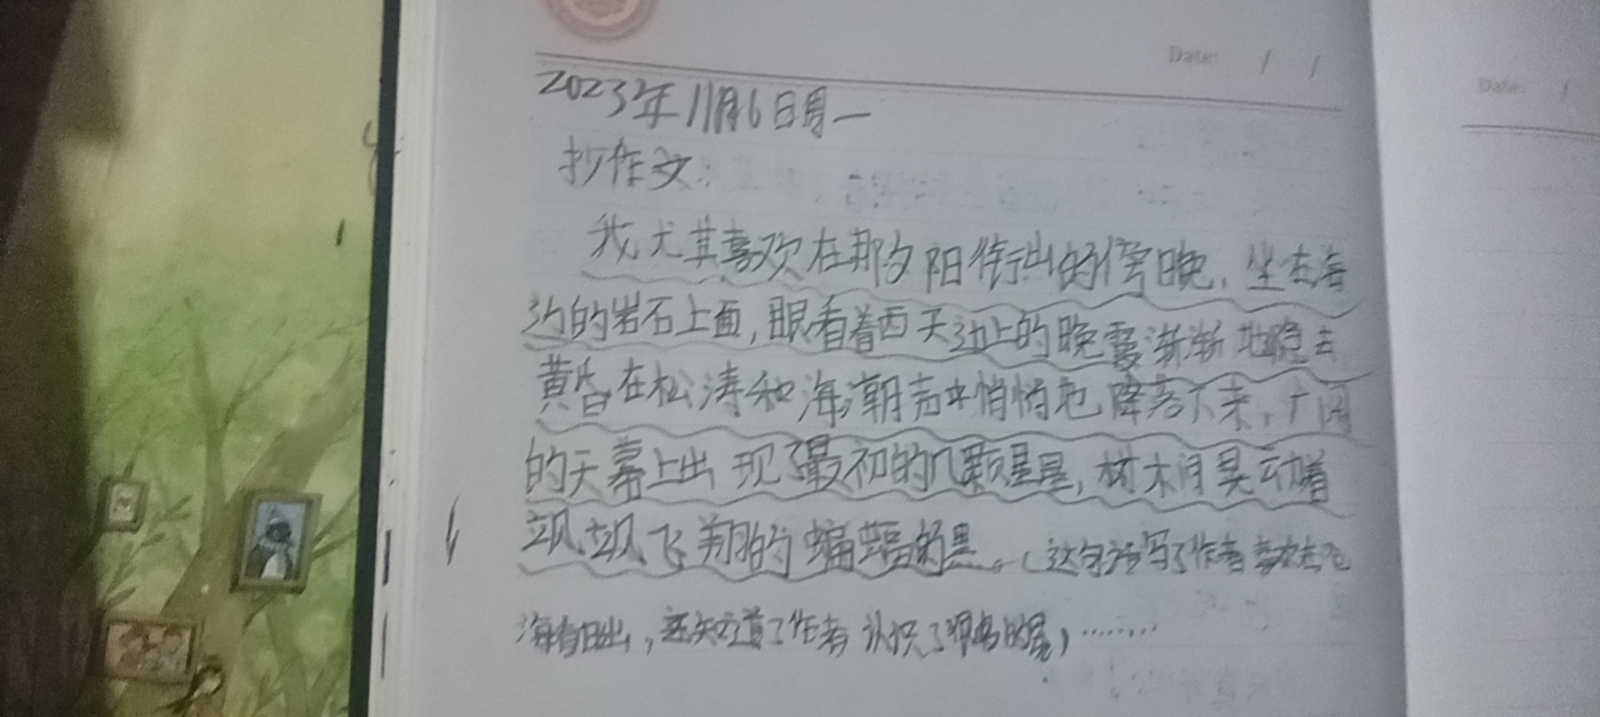 Date: / /
Date: /
2023年11月6日周一
抄作文:
我尤其喜欢在那夕阳衔山的傍晚，坐在海
边的岩石上面，眼看着西天边上的晚霞渐渐地隐去
黄昏在松涛和海潮声中悄悄地降落下来，广阔
的天幕上出现了最初的几颗星星，树木间晃动着
飞翔的蝙蝠的黑。（这句话写了作者喜欢去
海看日出，还知道了作者认识了很多的星）········